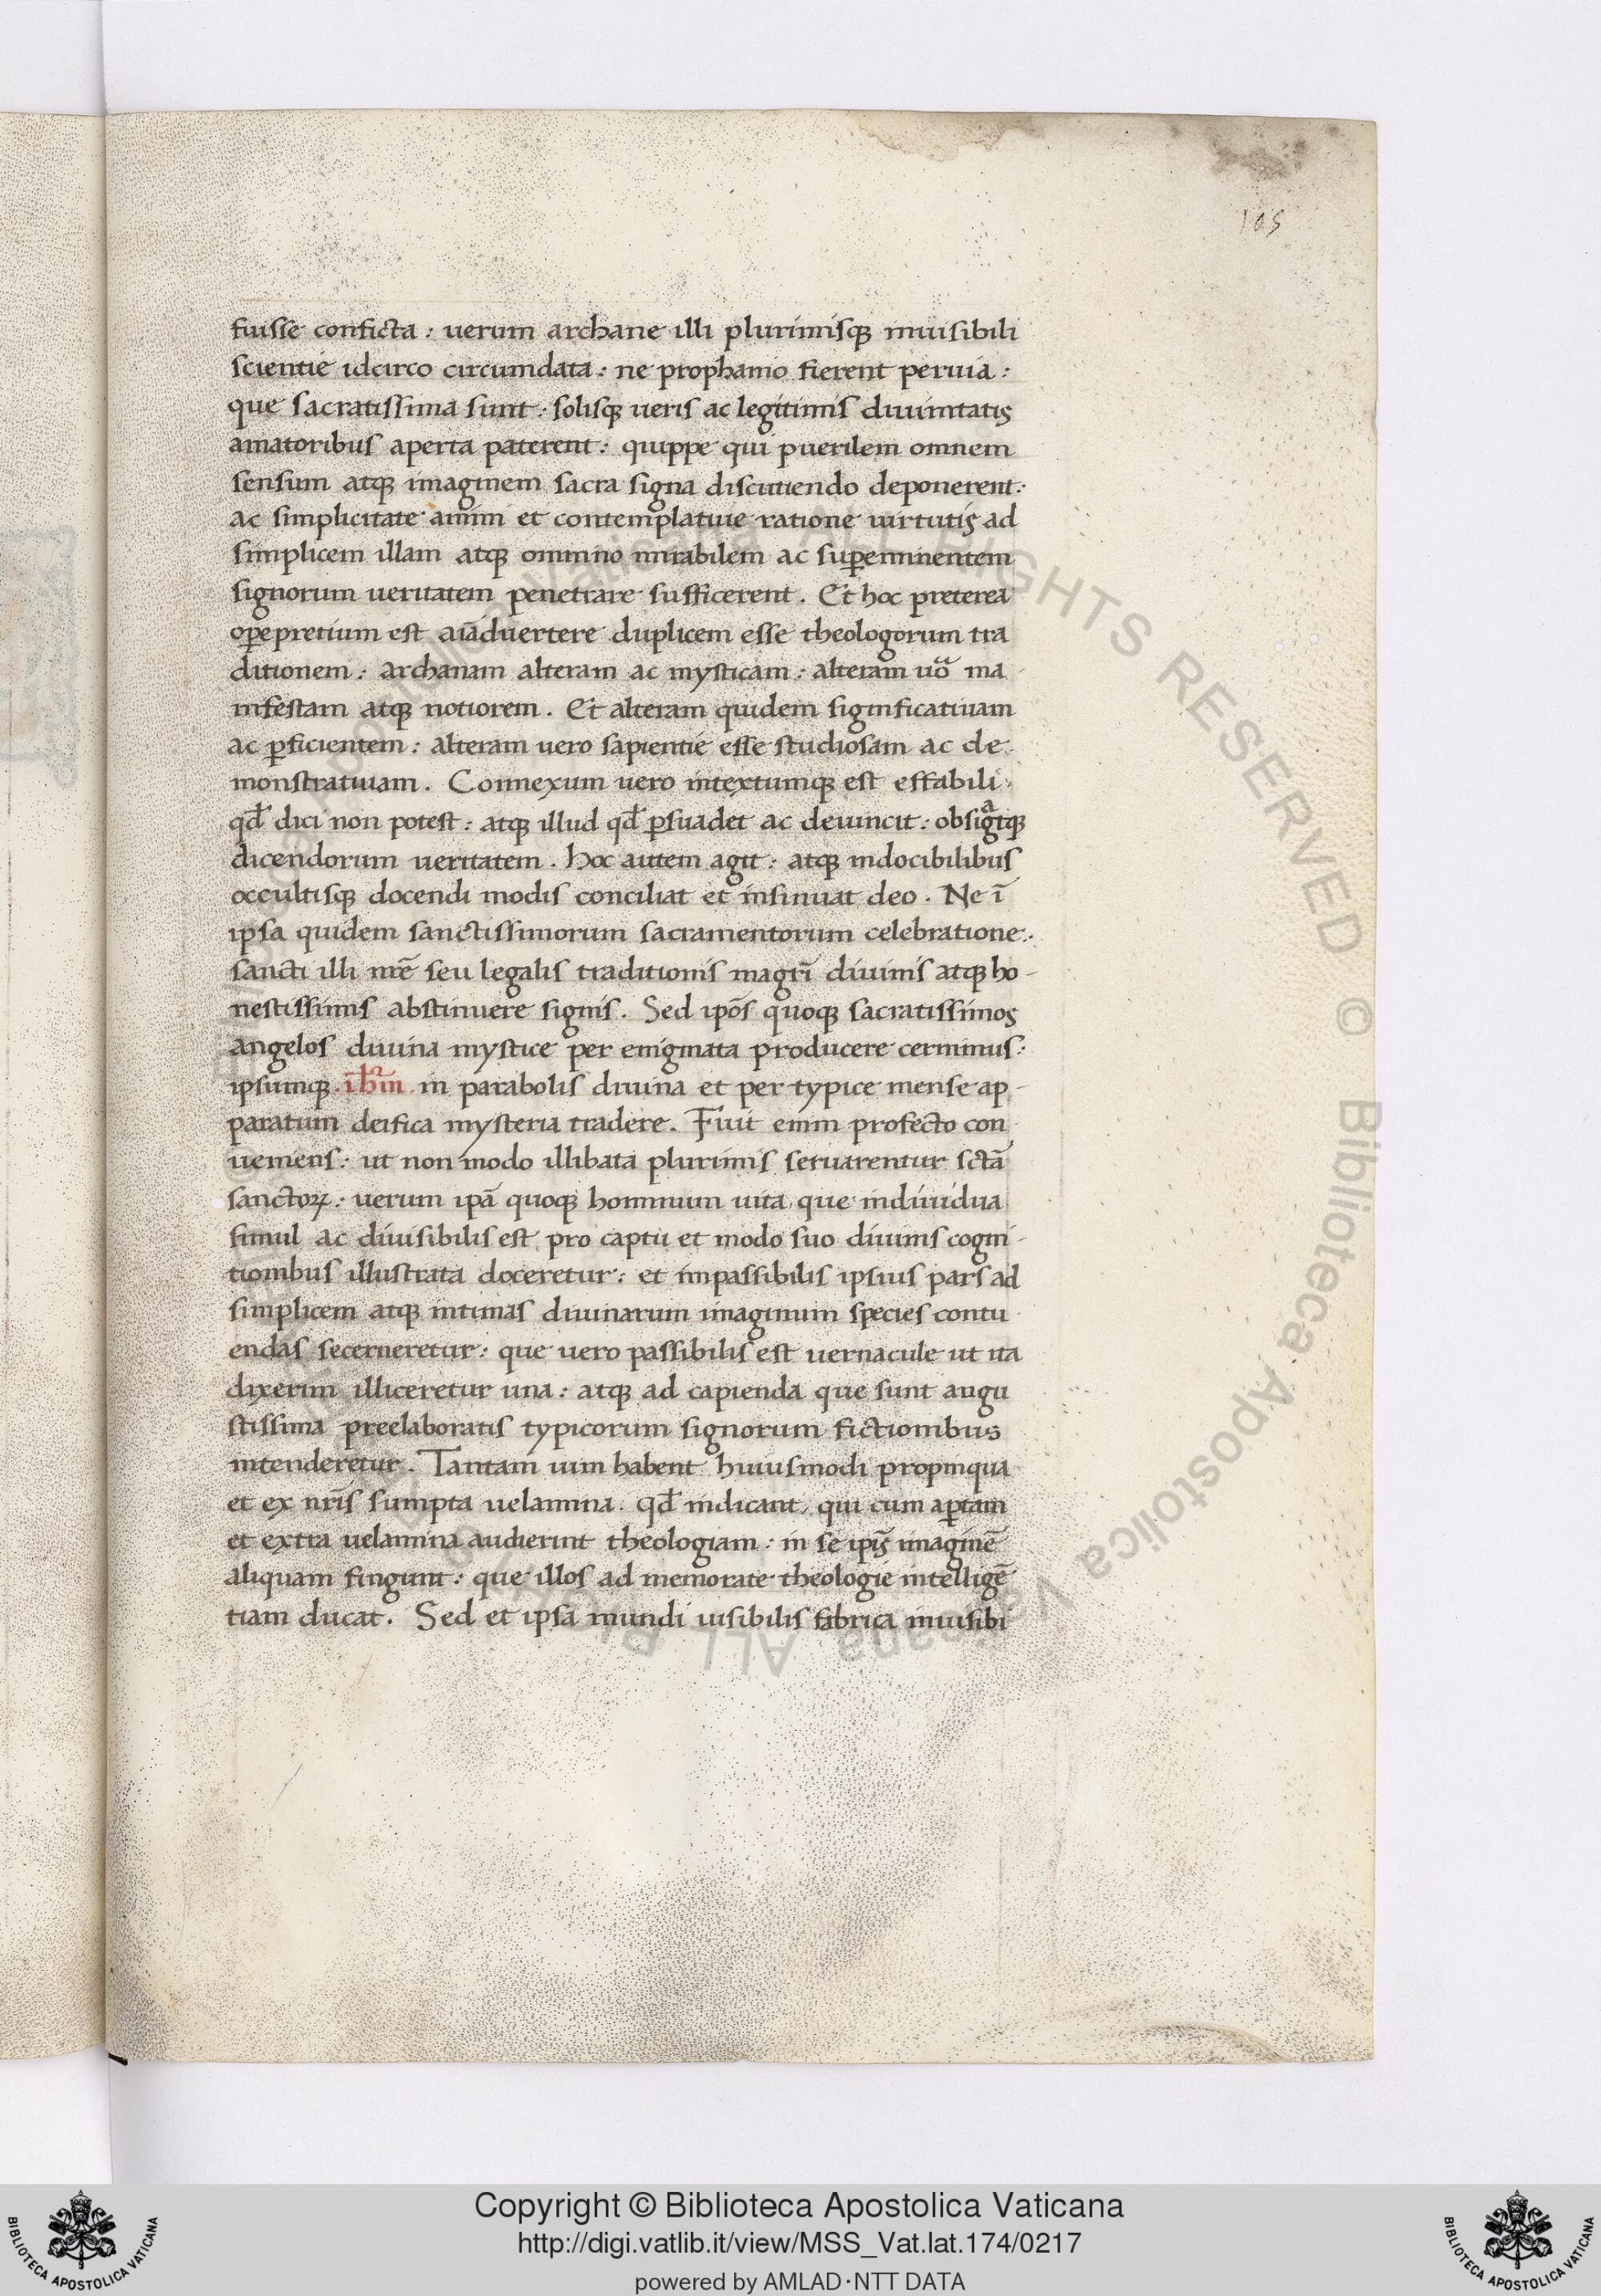 105
fuisse conficta: uerum archane illi plurimisq; inuisibili
scientie idcirco circumdata: ne prophano fierent peruia:
que sacratissima sunt: solisq; ueris ac legitimis diuinitatis
amatoribus aperta paterent: quippe qui puerilem omnem
sensum atq; imaginem sacra signa discutiendo deponerent:
ac simplicitate animi et contemplatiue ratione uirtutis ad
simplicem illam atq; omnino mirabilem ac suꝑeminentem
signorum ueritatem penetrare sufficerent. Et hoc preterea
oꝑepretium est aīaduertere duplicem esse theologorum tra
ditionem: archanam alteram ac mysticam: alteram uō ma
nifestam atq; notiorem. Et alteram quidem significatiuam
ac ꝑficientem: alteram uero sapientie esse studiosam ac de
monstratiuam. Connexum uero intextumq; est effabili
qd̄ dici non potest: atq; illud qd̄ ꝑsuadet ac deuincit: obsigᵃtq;
dicendorum ueritatem. Hoc autem agit: atq; indocibilibus
occultisq; docendi modis conciliat et insinuat deo. Ne ī
ipsa quidem sanctissimorum sacramentorum celebratione:
sancti illi nrē seu legalis traditionis magrī diuinis atq; ho-
nestissimis abstinuere signis. Sed ipōs quoq; sacratissimos
angelos diuina mystice per enigmata producere cernimus:
ipsumq; ihm̄ in parabolis diuina et per typice mense ap-
paratum deifica mysteria tradere. Fuit enim profecto con
ueniens: ut non modo illibata plurimis seruarentur sctā
sanctoꝝ: uerum ipā quoq; hominum uita que indiuidua
simul ac diuisibilis est pro captu et modo suo diuinis cogni-
tionibus illustrata doceretur: et impassibilis ipsius pars ad
simplicem atq; intimas diuinarum imaginum species contu
endas secerneretur: que uero passibilis est uernacule ut ita
dixerim illiceretur una: atq; ad capienda que sunt augu
stissima preelaboratis typicorum signorum fictionibus
intenderetur. Tantam uim habent huiusmodi propinqua
et ex nrīs sumpta uelamina. qd̄ indicant, qui cum aꝑtam
et extra uelamina audierint theologiam: in se ipīs imaginē
aliquam fingunt: que illos ad memorate theologie intelligē
tiam ducat. Sed et ipsa mundi uisibilis fabrica inuisibi
© Biblioteca Apostolica Vaticana ALL RIGHTS RESERVED
Copyright © Biblioteca Apostolica Vaticana
http://digi.vatlib.it/view/MSS_Vat.lat.174/0217
powered by AMLAD·NTT DATA
BIBLIOTECA APOSTOLICA VATICANA
BIBLIOTECA APOSTOLICA VATICANA